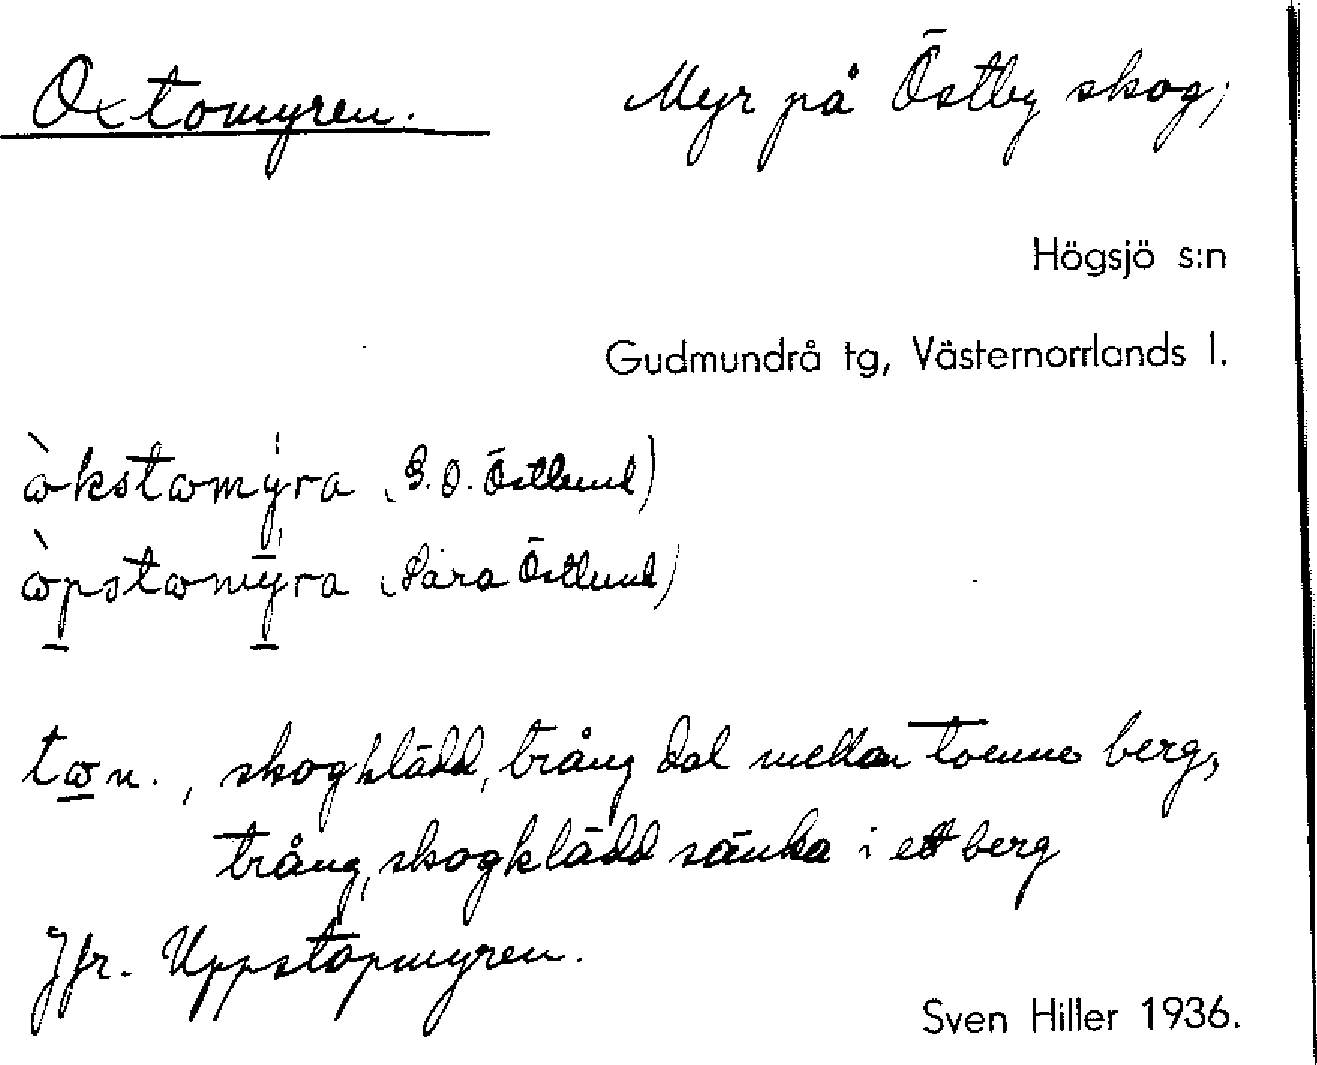 Oxtomyren. Myr på Östby skog,
Högsjö s:n
Gudmundrå tg, Västernorrlands l.
ὼkstωmy̍ra (G.O. Östlund)
ὼpstωmy̍ra (Sara Östlund)
tω̲ n., skogklädd, trång dal mellan tvenne berg,
trång, skogklädd sänka i ett berg
Jfr. Uppstapmyren.
Sven Hiller 1936.